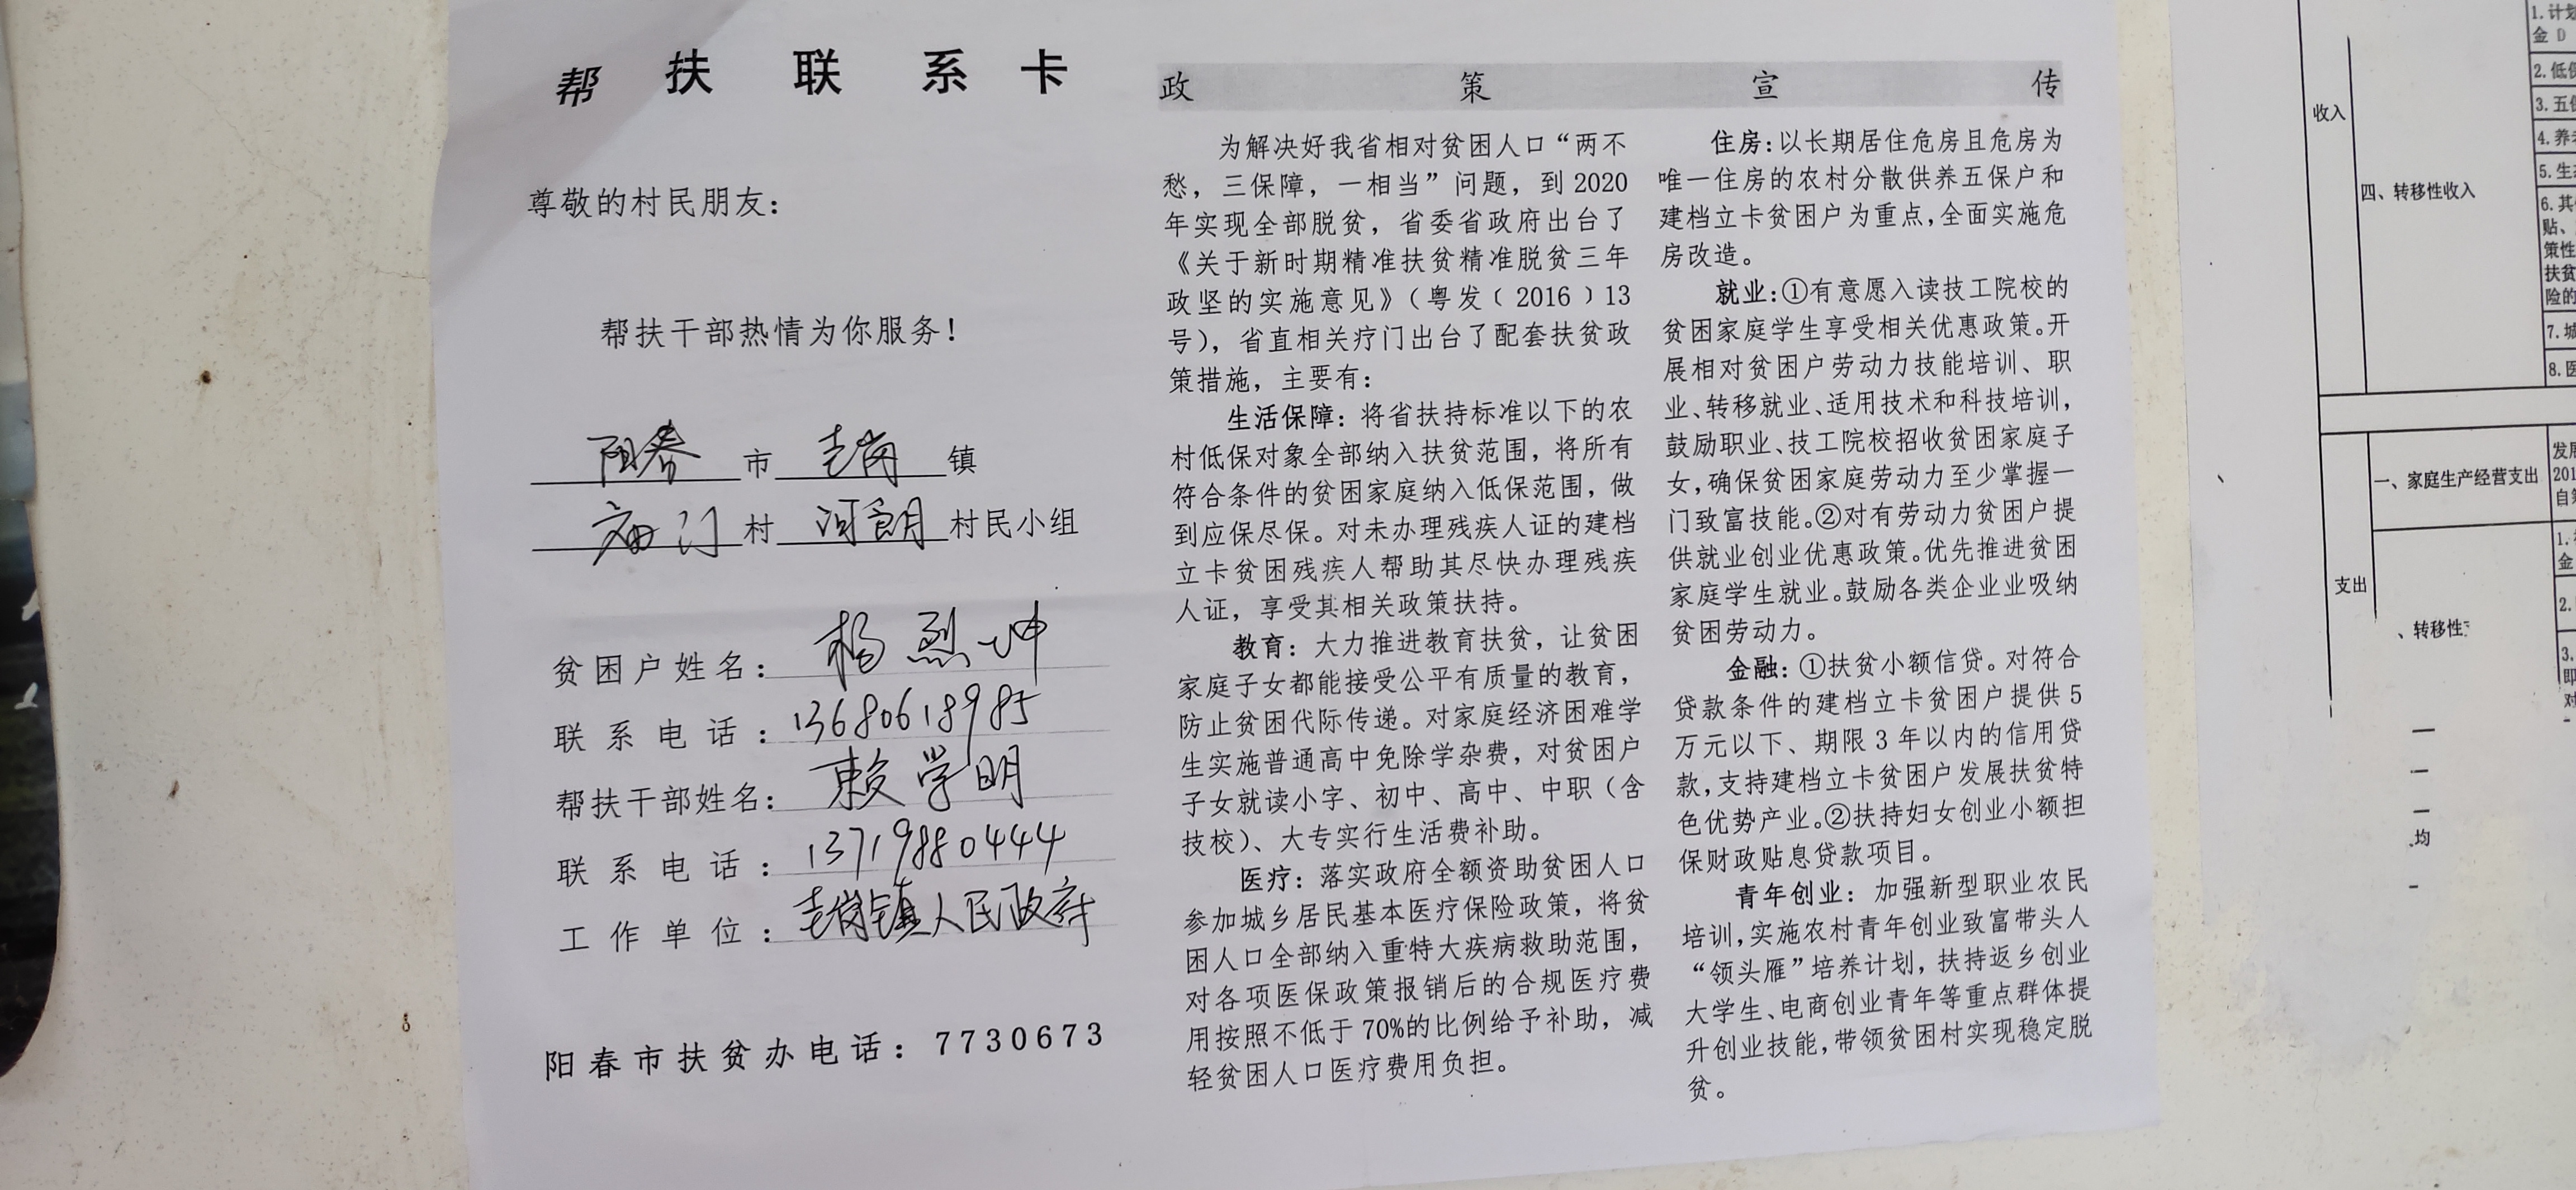 帮扶联系卡
尊敬的村民朋友：
帮扶干部热情为你服务！
阳春市 圭岗镇
庙门村 河朗村民小组
贫困户姓名：杨烈坤
联系电话：13680618985
帮扶干部姓名：赖学明
联系电话：13719880444
工作单位：圭岗镇人民政府
阳春市扶贫办电话：7730673
政策宣传
为解决好我省相对贫困人口“两不
愁，三保障，一相当”问题，到2020
年实现全部脱贫，省委省政府出台了
《关于新时期精准扶贫精准脱贫三年
政坚的实施意见》（粤发﹝2016﹞13
号），省直相关疗门出台了配套扶贫政
策措施，主要有：
生活保障：将省扶持标准以下的农
村低保对象全部纳入扶贫范围，将所有
符合条件的贫困家庭纳入低保范围，做
到应保尽保。对未办理残疾人证的建档
立卡贫困残疾人帮助其尽快办理残疾
人证，享受其相关政策扶持。
教育：大力推进教育扶贫，让贫困
家庭子女都能接受公平有质量的教育，
防止贫困代际传递。对家庭经济困难学
生实施普通高中免除学杂费，对贫困户
子女就读小字、初中、高中、中职（含
技校）、大专实行生活费补助。
医疗：落实政府全额资助贫困人口
参加城乡居民基本医疗保险政策，将贫
困人口全部纳入重特大疾病救助范围，
对各项医保政策报销后的合规医疗费
用按照不低于70%的比例给予补助，减
轻贫困人口医疗费用负担。
住房：以长期居住危房且危房为
唯一住房的农村分散供养五保户和
建档立卡贫困户为重点，全面实施危
房改造。
就业：①有意愿入读技工院校的
贫困家庭学生享受相关优惠政策。开
展相对贫困户劳动力技能培训、职
业、转移就业、适用技术和科技培训，
鼓励职业、技工院校招收贫困家庭子
女，确保贫困家庭劳动力至少掌握一
门致富技能。②对有劳动力贫困户提
供就业创业优惠政策。优先推进贫困
家庭学生就业。鼓励各类企业业吸纳
贫困劳动力。
金融：①扶贫小额信贷。对符合
贷款条件的建档立卡贫困户提供5
万元以下、期限3年以内的信用贷
款，支持建档立卡贫困户发展扶贫特
色优势产业。②扶持妇女创业小额担
保财政贴息贷款项目。
青年创业：加强新型职业农民
培训，实施农村青年创业致富带头人
“领头雁”培养计划，扶持返乡创业
大学生、电商创业青年等重点群体提
升创业技能，带领贫困村实现稳定脱
贫。
收入
四、转移性收入
1.计划
金
2.低保
3.五保
4.养老
5.生态
6.其
贴、
策性
扶贫
险的
7.城
8.医
支出
一、家庭生产经营支出
发展
201
自筹
、转移性
1.
金
2.
3.
即
对
均